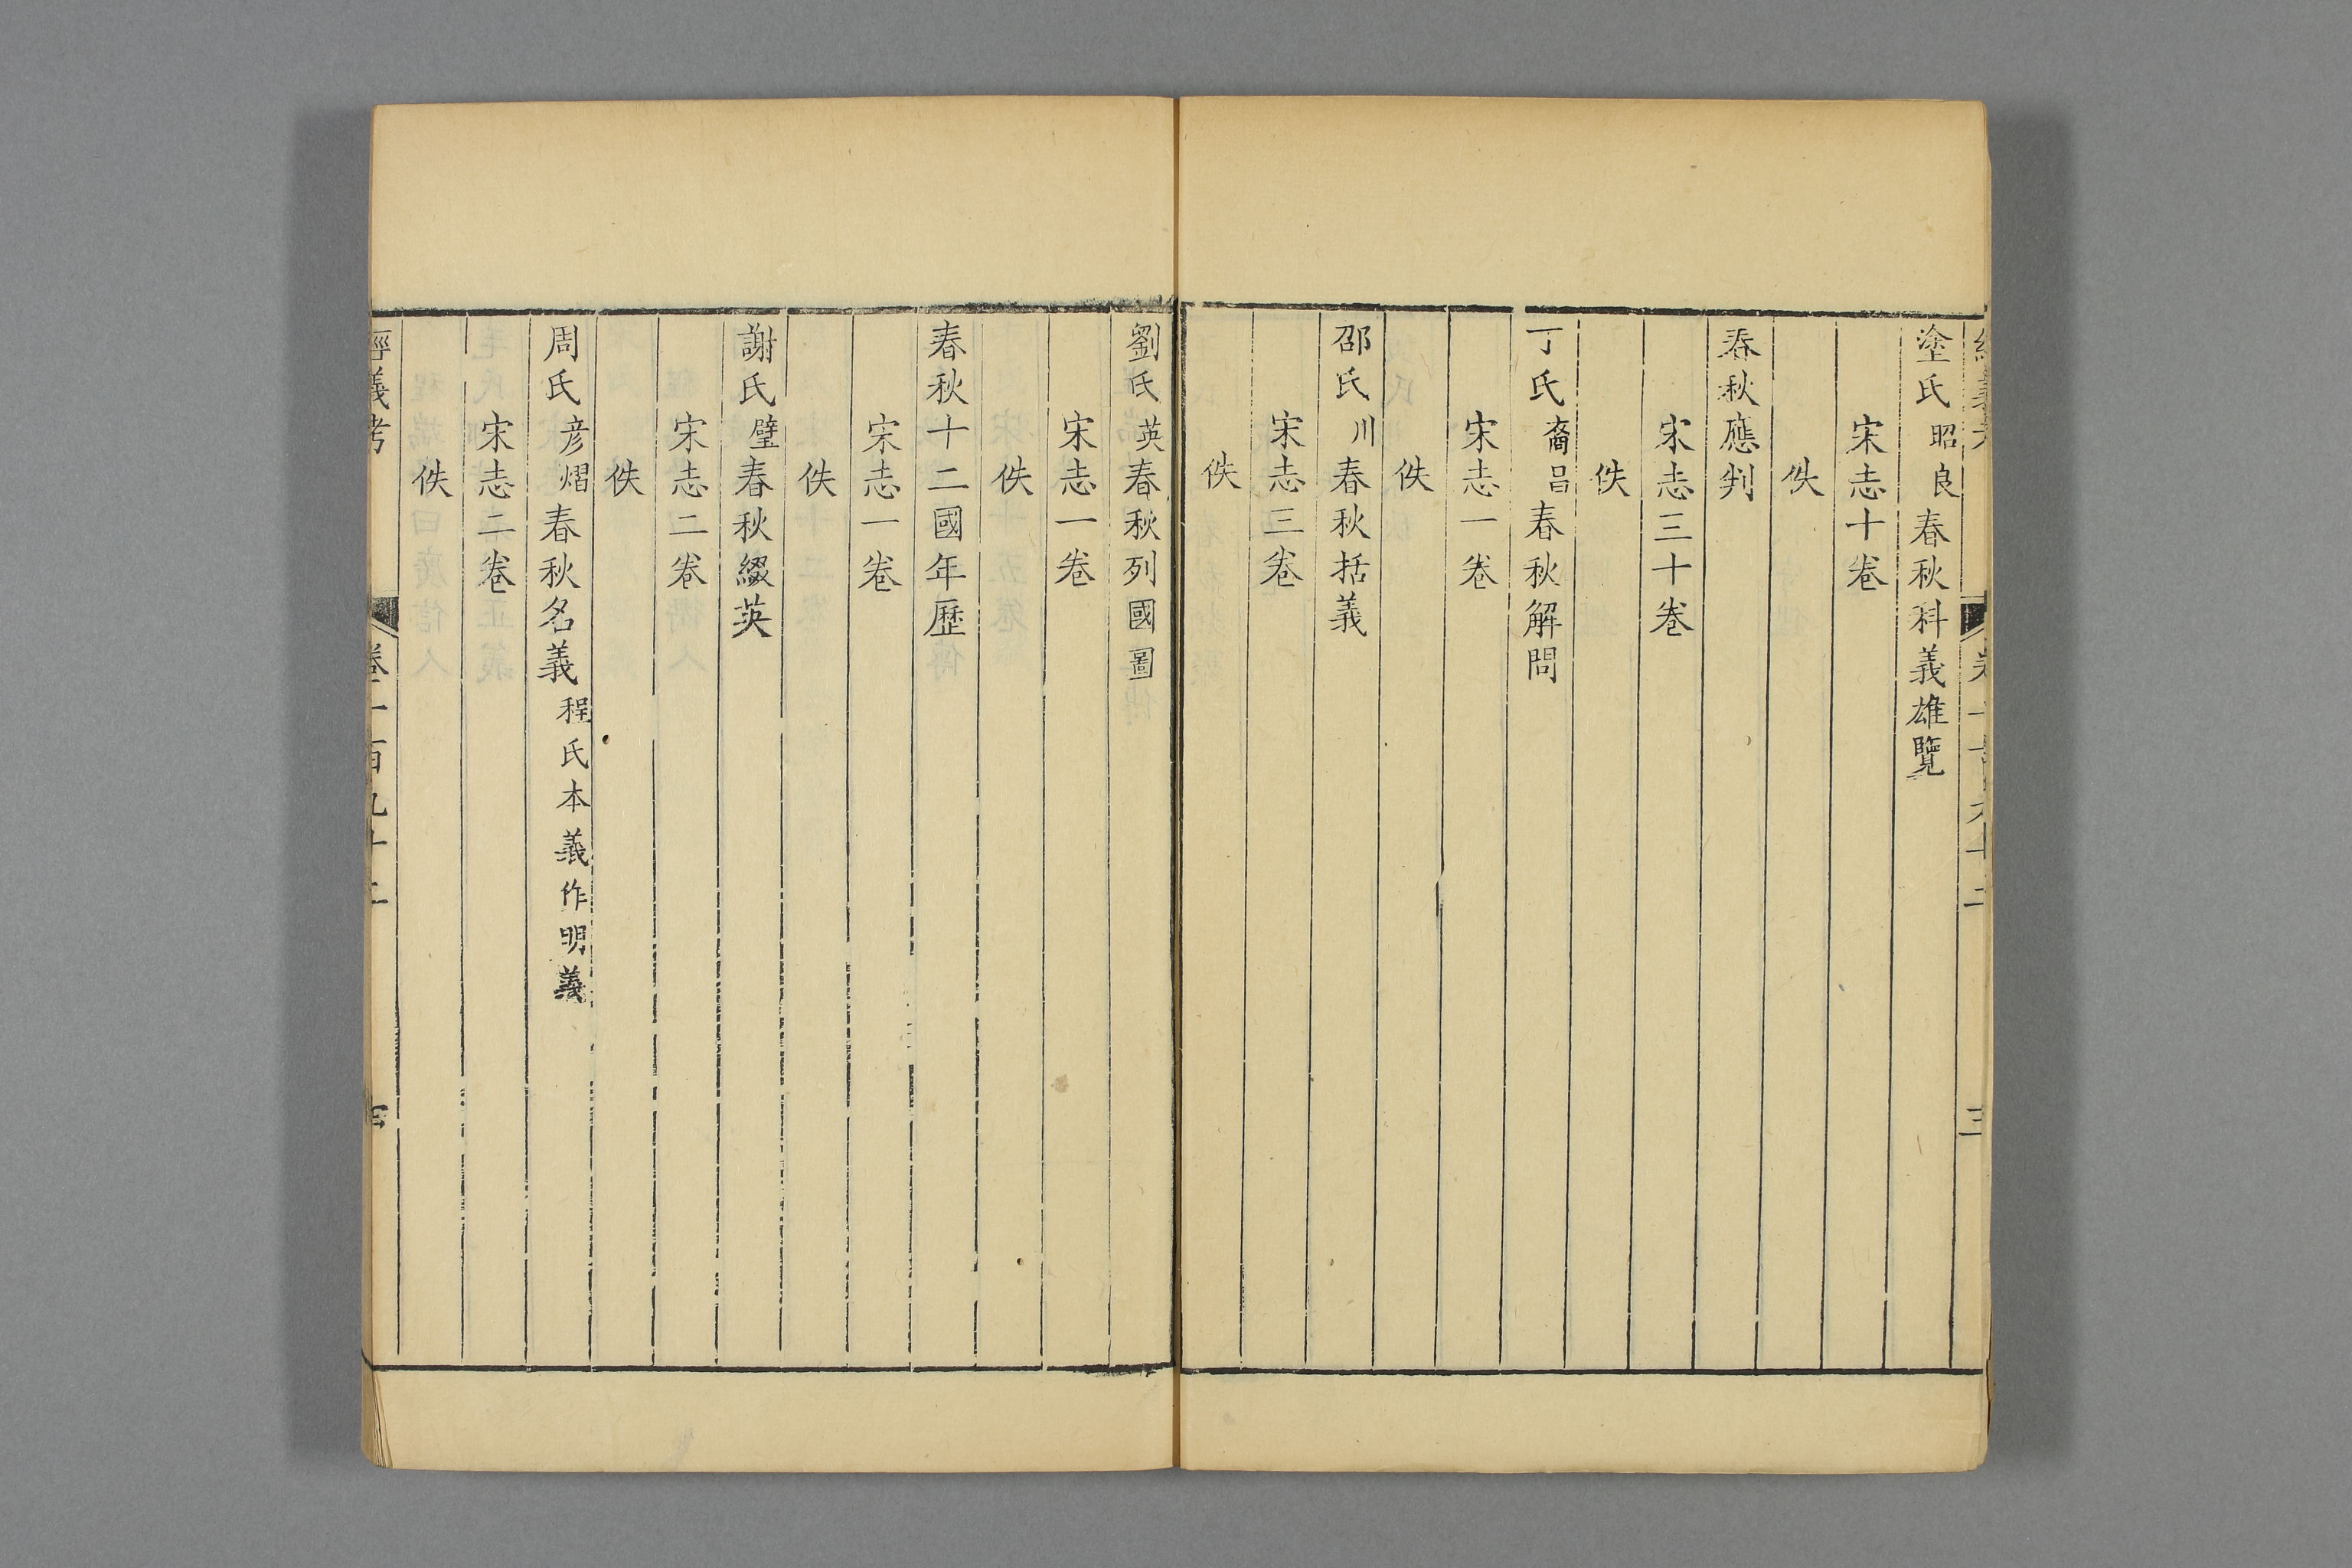 塗氏昭良春秋科義雄覽
宋志十卷
佚
春秋應判
宋志三十卷
佚
丁氏裔昌春秋解問
宋志一卷
佚
邵氏川春秋括義
宋志三卷
佚
劉氏英春秋列國圖
宋志一卷
佚
春秋十二國年歷
宋志一卷
佚
謝氏璧春秋綴英
宋志二卷
佚
周氏彦熠春秋名義程氏本義作明義
宋志二卷
佚
經義考 卷一百九十二